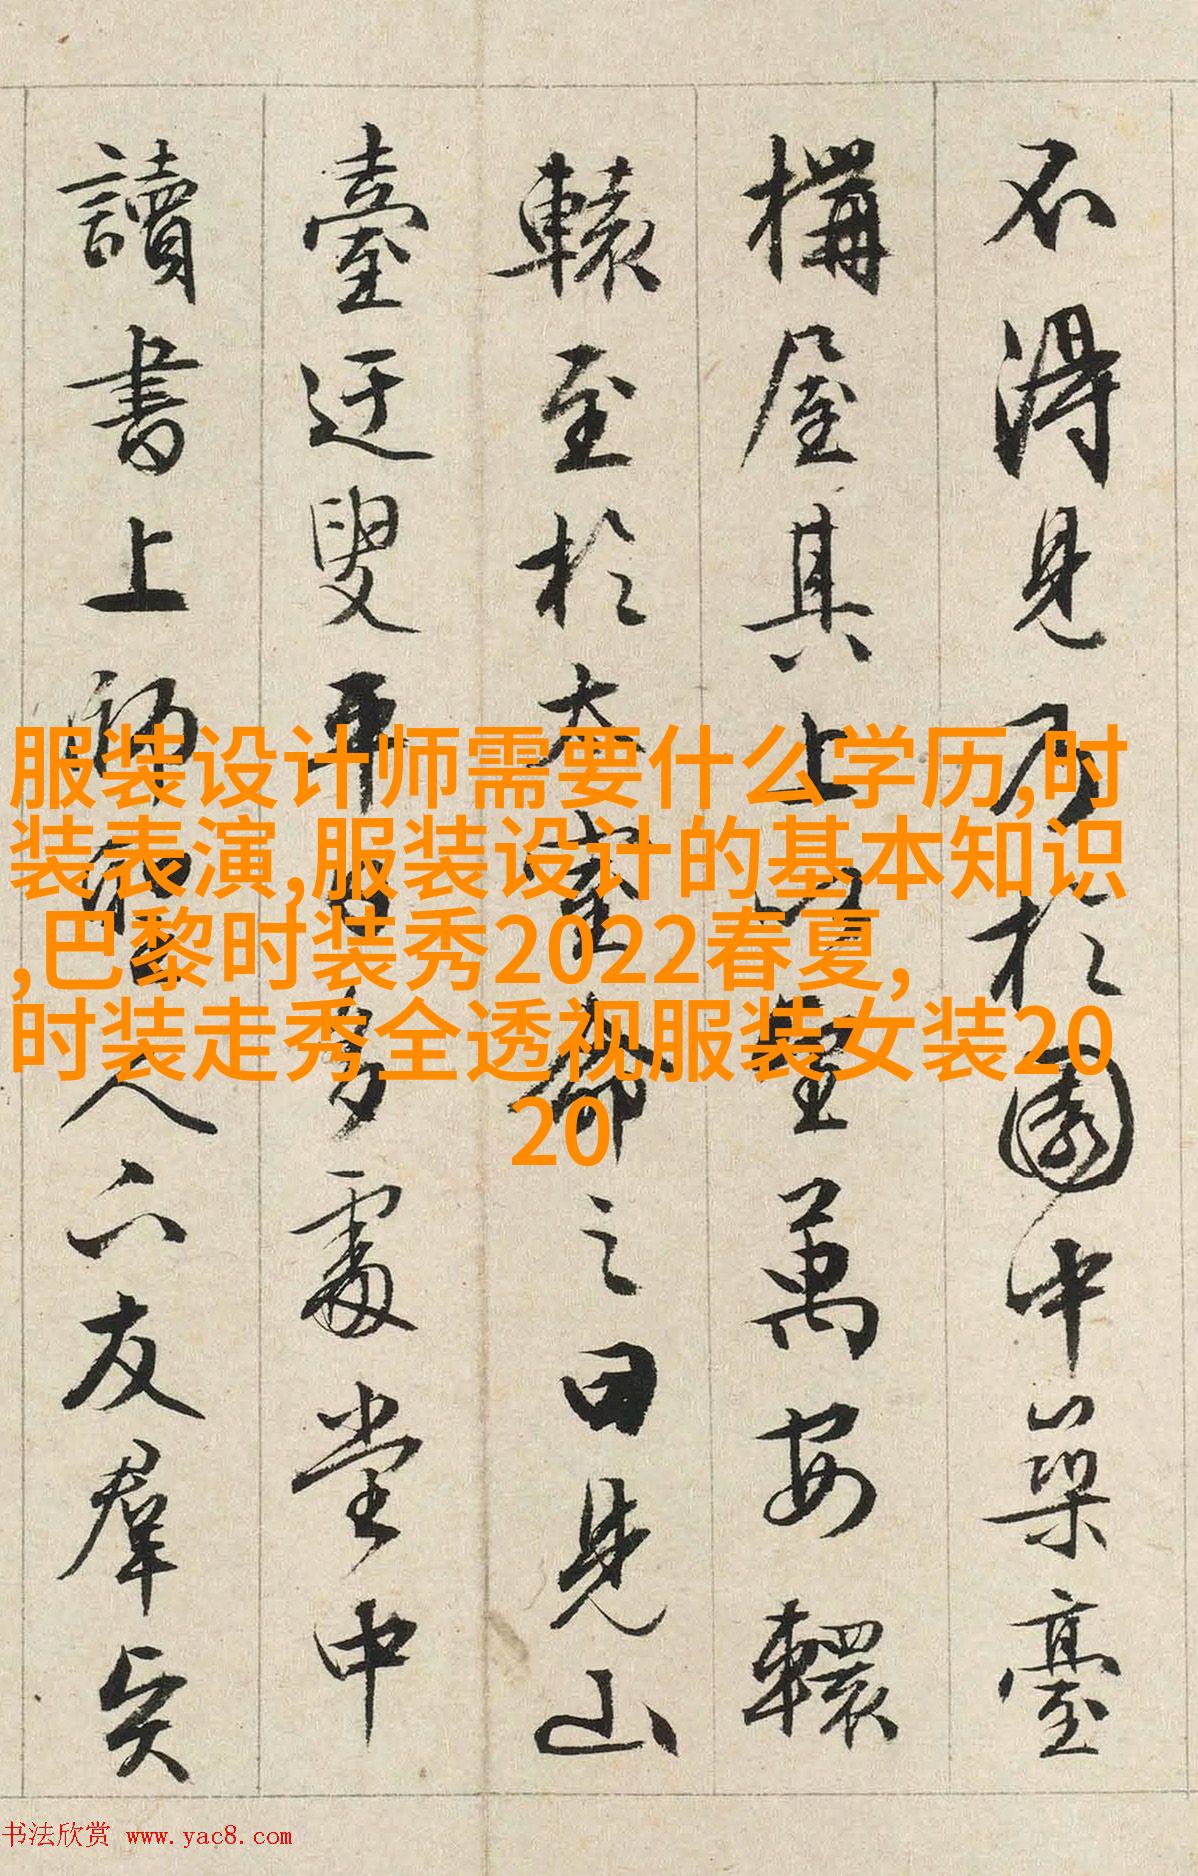 不得見而於園中築臺
構屋其上以望萬安轘
轅至於太室命之曰見山
臺迂叟平日多處堂中
讀書上師聖人下友群賢
服装设计师需要什么学历,时
装表演,服装设计的基本知识
,巴黎时装秀2022春夏,
时装走秀全透视服装女装20
20
书法欣赏 www.yac8.com